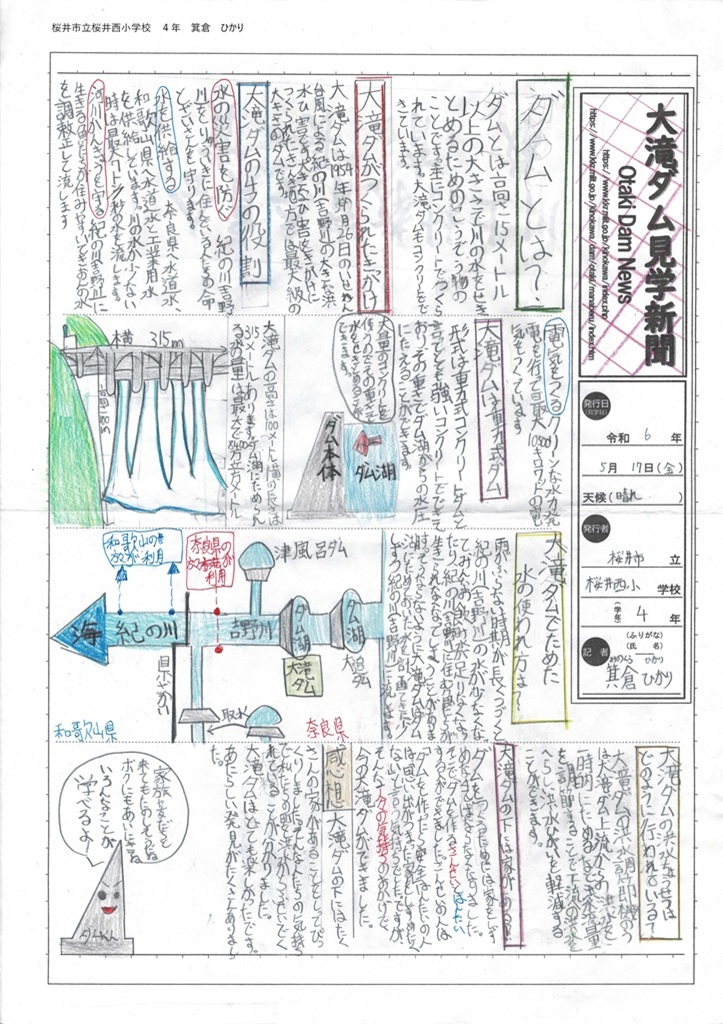 桜井市立桜井西小学校　4年　箕倉　ひかり
大滝ダム見学新聞
Otaki Dam News
https://www.kkr.mlit.go.jp/kinokawa/index.php
https://www.kkr.mlit.go.jp/kinokawa/dam/otaki/manaberu/index.htm
発行日
(見学日)
令和 6 年
5月 17日(金)
天候(晴れ)
発行者
桜井市 立
桜井西小 学校
(学年) 4 年
記者
(ふりがな)
(氏名)
みのくら ひかり
箕倉 ひかり
ダムとは?
ダムとは高さ15メートル
以上の大きさで川の水をせき
とめるためのこうぞう物の
ことで主にコンクリートでつくら
れています。大滝ダムもコンクリートでで
きています。
大滝ダムがつくられたきっかけ
大滝ダムは1959年9月26日のいせわん
台風による紀の川(吉野川)の大きな洪
水ひ害とかっ水ひ害をきっかけに
つくられたきんき地方では最大級の
大きさのダムです。
大滝ダムの4つの役割
水の災害を防ぐ 紀の川(吉野
川)をりゅういきに住んでいる人たちの命
とざいさんを守ります。
水を供給する 奈良県へ水道水、
和歌山県へ水道水と工業用水
を供給しています。川の水が少ない
時は最大1トン/秒の水を流します。
河川かんきょうを守る 紀の川(吉野川)に
生きる魚などが住みやすいようにダムの水
を調整して流します
電気をつくる クリーンな水力発
電を行って最大10500キロワットの電
気をつくっています。
大滝ダムは重力式ダム
形式は重力式コンクリートダムと
言ってとても強いコンクリートでできて
おりその重さでダム湖からの水圧
にたえることができます。
大量のコンクリートを
使うのでその重さで
水をせき止めることが
できます。
ダム湖
ダム本体
大滝ダムの高さは100メートル、横の長さは
315メートルあります。ダム湖にためられ
る水の量は最大で8400万立方メートル
横 315m
高さ100m
大滝ダムでためた
水の使われ方は?
雨がふらない時期が長くつづくと
紀の川(吉野川)の水が少なくなっ
てみんなの飲み水が足りなくなっ
たり紀の川(吉野川)に住む魚などが
生きられなくなってしまうことがありま
す。そうならないように大滝ダムはダム湖
にためられた水を計画てきに少
しずつ紀の川(吉野川)へ流します。
津風呂ダム
ダム湖
大迫ダム
ダム湖
大滝ダム
吉野川
紀の川
海
奈良県の水道利用
和歌山の水などが利用
取水
和歌山県
奈良県
大滝ダムの洪水調せつは
どのように行われている?
大滝ダムの洪水調節機のう
は大滝ダム上流からの洪水を
一時的にためるなどで流水量
を調節することで下流の洪水
やしん水ひがいを軽減する
ことができます。
大滝ダムの下には家がある?
感想
大滝ダムの下にはたく
さんの家があることをしってびっ
くりしました。
大滝ダムはとても楽しかったです。
あたらしい発見がたくさんありまし
た。
家族や友だちと
来てものしろいね
ボクにもあいにきてね
いろんなことが
学べるよ!
ダムくん